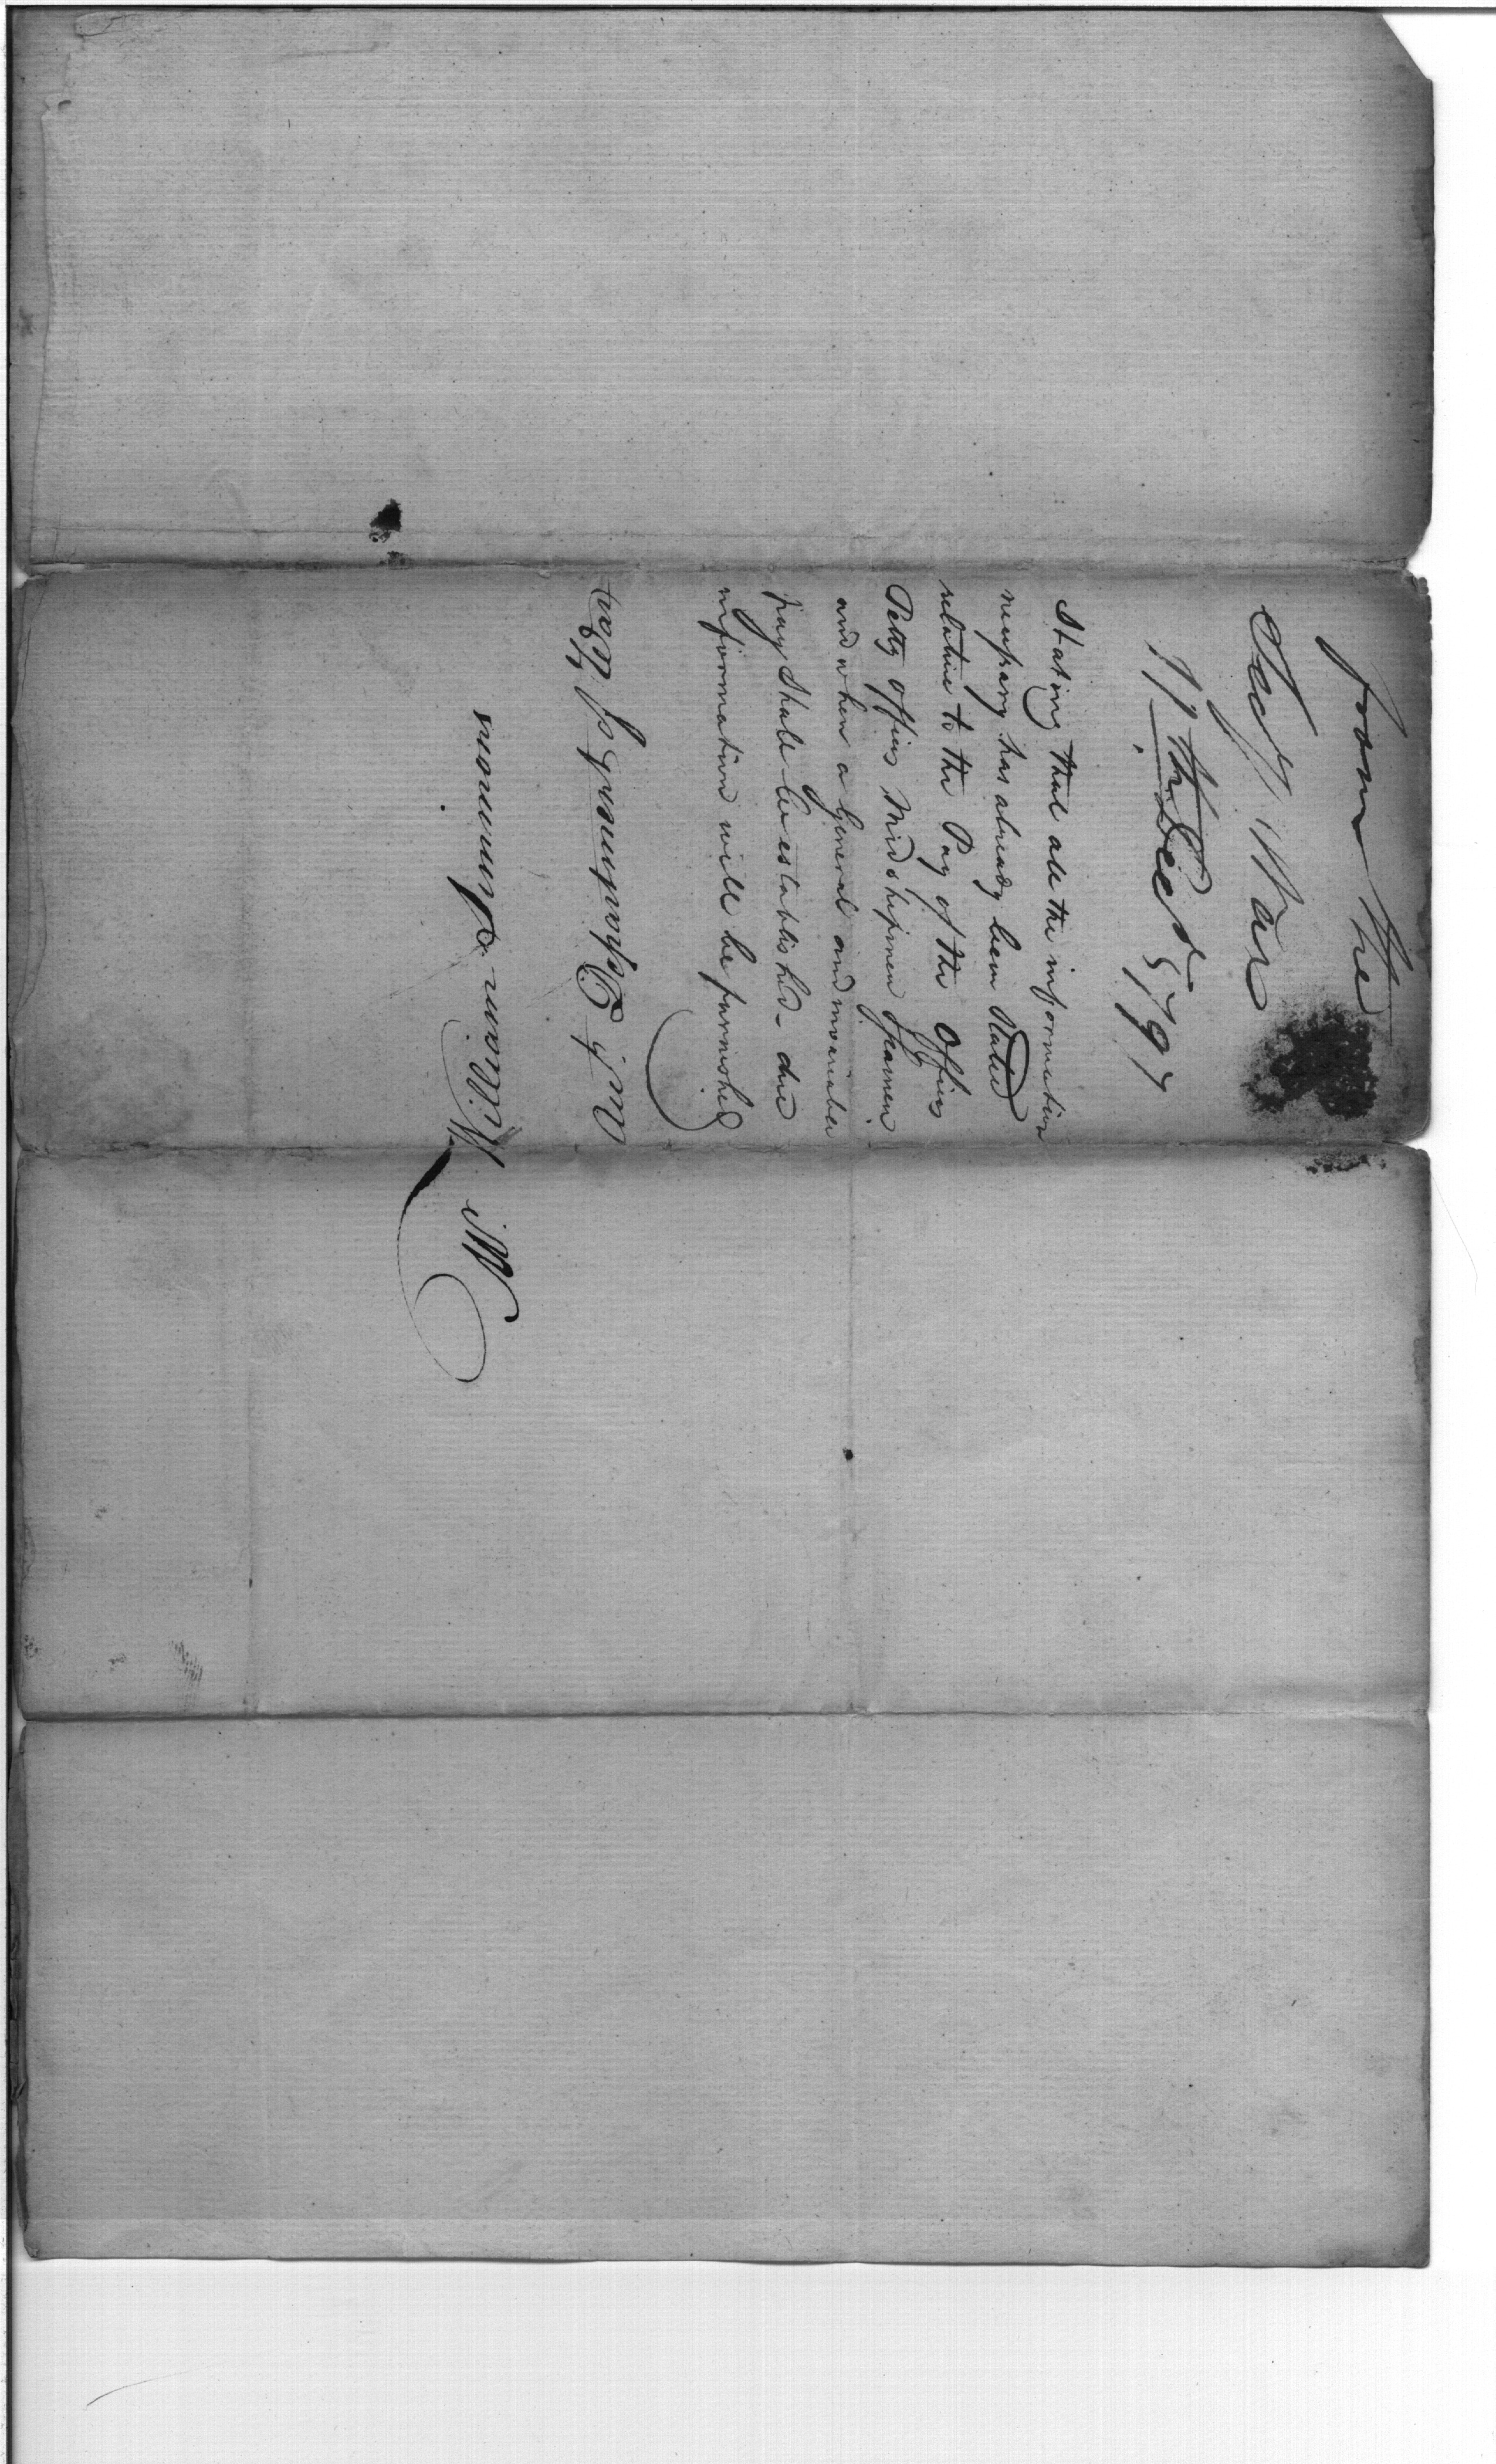 from the
Secy War
11 th Decr 1797
Stating that all the information
necessary has already been Stated
relative to the Pay of the Officers
Petty officers Midshipmen Seamen
and when a general and invariable
pay Shall be established - due
information will be furnished
Mr William Simmons